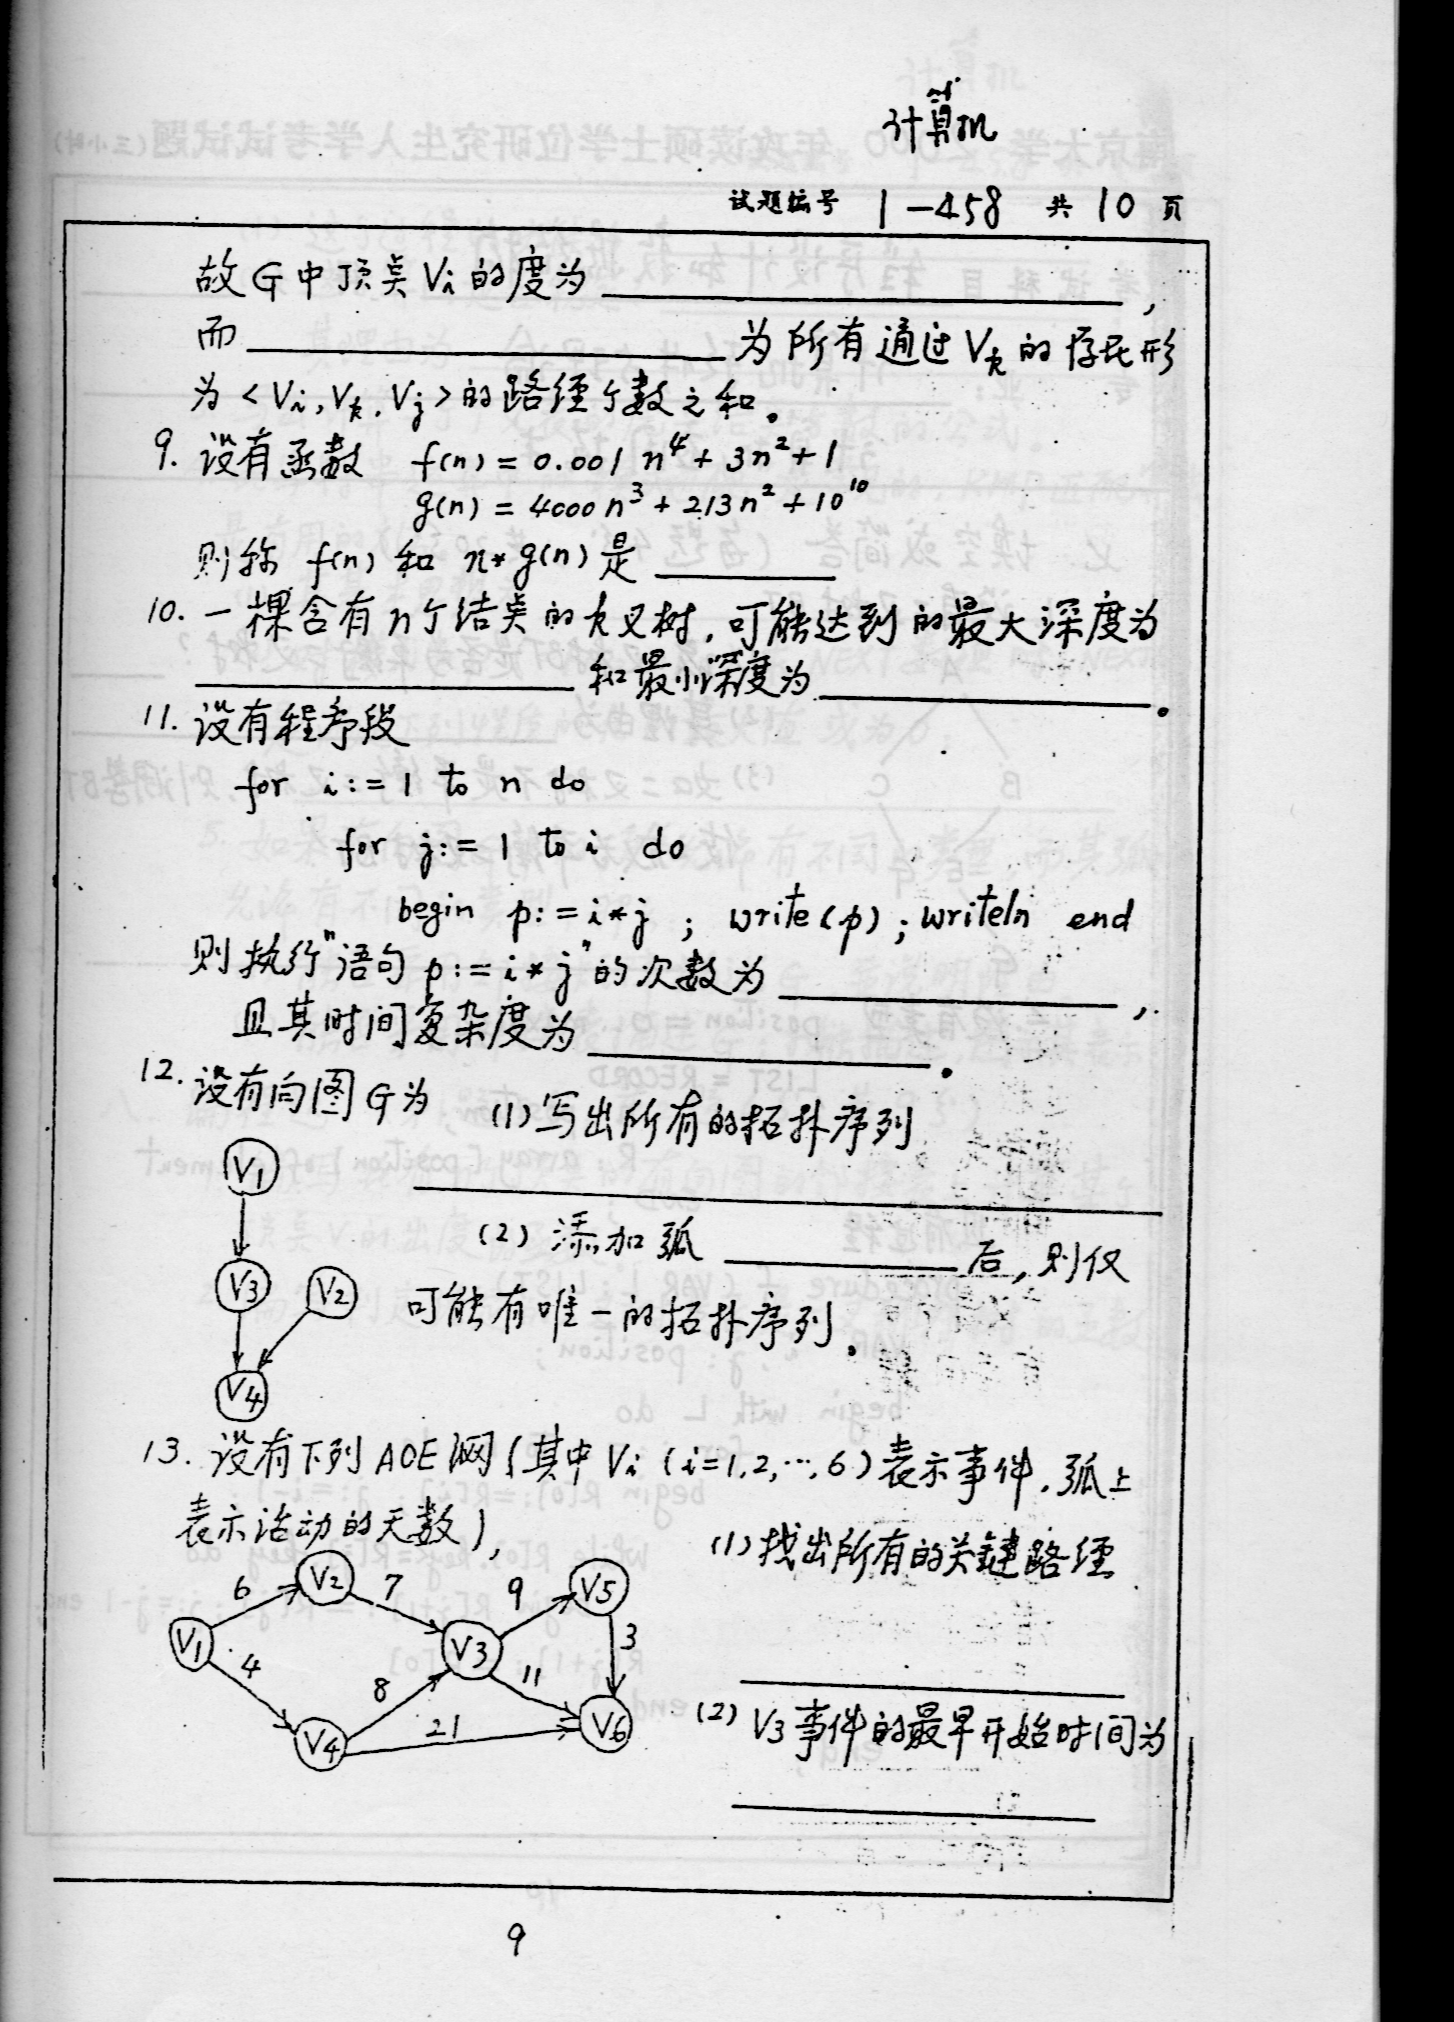 计算机
试题编号 1-458 共 10 页
故G中顶点Vi的度为 ,
而 为所有通过Vk的存在形
为<Vi,Vk,Vj>的路径个数之和。
9. 设有函数 f(n) = 0.001 n⁴ + 3n² + 1
g(n) = 4000n³ + 213n² + 10¹⁰
则称 f(n) 和 n*g(n) 是
10. 一棵含有n个结点的k叉树,可能达到的最大深度为
和最小深度为 。
11. 设有程序段
for i:=1 to n do
for j:=1 to i do
begin p:=i*j ; write(p) ; writeln end
则执行"语句 p:=i*j"的次数为 ,
且其时间复杂度为 。
12. 设有向图G为 (1)写出所有的拓扑序列
V1
(2) 添加弧 后,则仅
V3 V2 可能有唯一的拓扑序列。
V4
13. 设有下列AOE网(其中Vi (i=1,2,…,6)表示事件,弧上
表示活动的天数),
(1)找出所有的关键路径
6 V2 7 9 V5
V1 4 V3 3
8 11
V4 21 V6
(2) V3事件的最早开始时间为
9